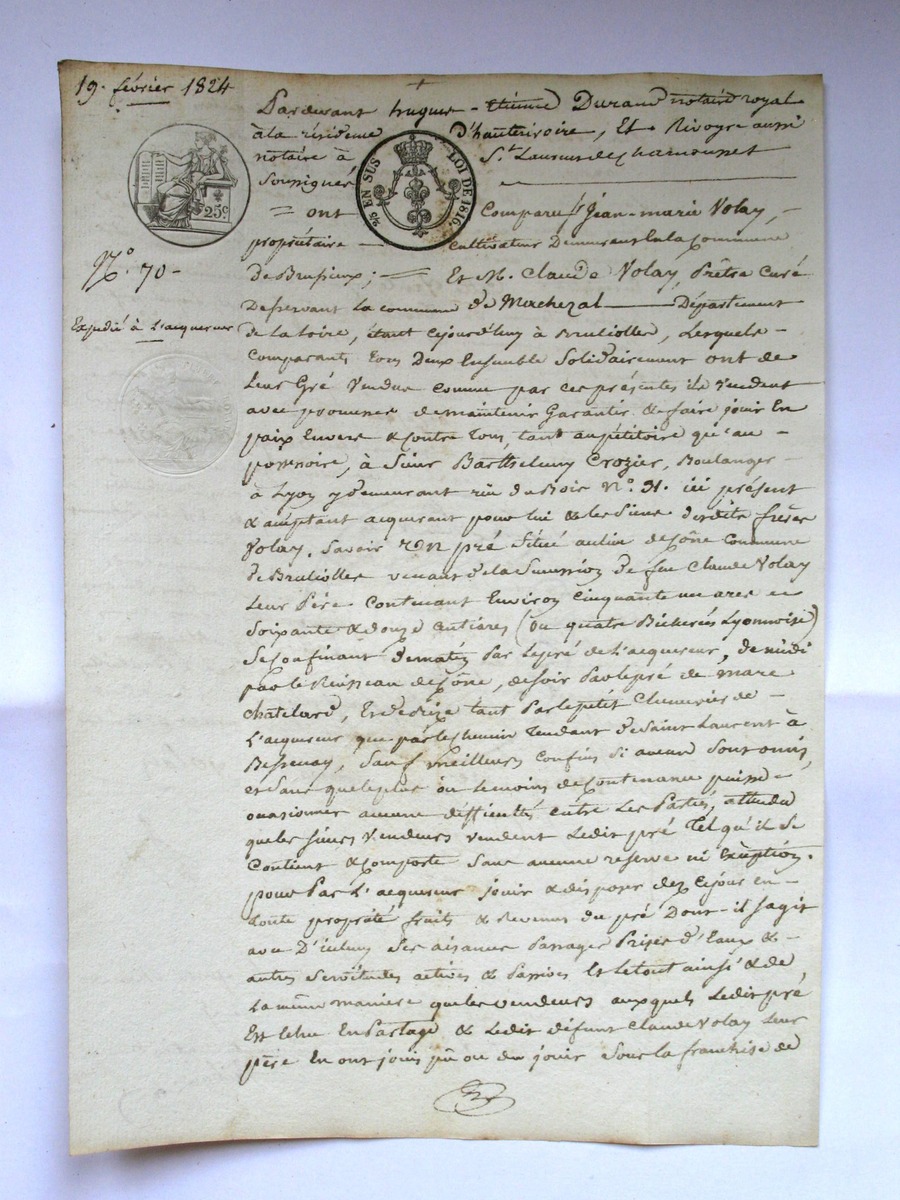 19. février 1824
Pardevant hugues - etienne Durand notaire royal
a la résidence d'hauterivoire, Et Rivoyre aussi
notaire à St. Laurent de chamousset
Soussignés
25c
EN SUS LOI DE 1816.
= ont Comparu Sr. Jean-marie Volay, -
propriétaire - cultivateur Demeurant En la Commune
N.o 70 -
de Brussieux; = Et M. Claude Volay, Prêtre Curé
Desservant la commune de Machezal Département
Expédié à L'acquereur
de la Loire, étant cejourd'huy à Brullioles, Lesquels
Comparants Tous Deux Ensemble Solidairement ont de
Leur Gré Vendus comme par ces présentes ils vendent
avec promesse de maintenir Garantir & faire jouir En
paix Envers & contre Tous, tant au pétitoire qu'au -
possessoire, à Sieur Barthelemy Crozier, Boulanger -
à Lyon y demeurant rue du Bois N.o 31. ici présent
& acceptant acquerant pour lui & les Siens desdits frères
Volay. Savoir un pré Situé au lieu de Cône Commune
de Brullioles venant de la Succession de feu Claude Volay
Leur Père Contenant Environ cinquante un ares et
Soixante & douze centiares (ou quatre Bicherées Lyonnoise)
Se Confinant de matin Par Le pré de L'acquereur, de midi
par le Ruisseau de Cône, de soir Par le pré de marc
chatelard, Et de bize tant Par le petit Chenevier de -
L'acquereur que par le chemin Tendant de Saint Laurent à
Bessenay, Sauf meilleurs Confins Si aucuns Sont omis
et Sans que le plus ou le moins de Contenance puisse -
occasionner aucune difficultés entre Les Parties, attendu
que les Sieurs Vendeurs vendent Ledit pré Tel qu'il Se
Contient & comporte Sans aucune reserve ni Exception.
pour Par L'acquereur jouir & disposer dez ce jour en -
toute propriété fruits & Revenus du pré Dont-il s'agit
avec D'iceluy Ses aisances Passages Prises d'Eaux & -
autres Servitudes actives & Passives Et le tout ainsi & de
La même maniere que les vendeurs auxquels Ledit pré
Est échu En Partage & Ledit défunt Claude Volay Leur
père En ont joui pû ou du jouir Sous la franchise de